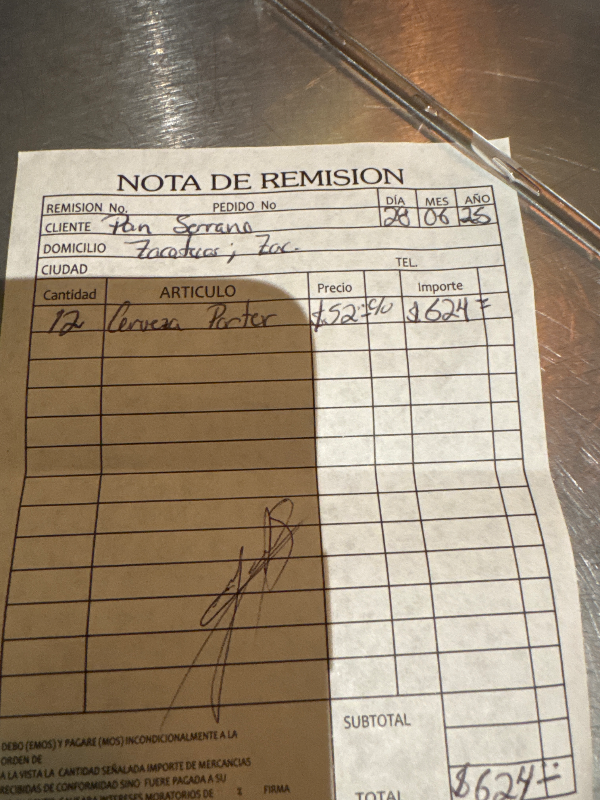 NOTA DE REMISION
REMISION No. PEDIDO No DÍA MES AÑO
CLIENTE Pan Serrano 28 06 25
DOMICILIO Zacatecas; Zac.
CIUDAD TEL.
Cantidad ARTICULO Precio Importe
12 Cerveza Porter $52=c/u $624=
SUBTOTAL
DEBO (EMOS) Y PAGARE (MOS) INCONDICIONALMENTE A LA
ORDEN DE
A LA VISTA LA CANTIDAD SEÑALADA IMPORTE DE MERCANCIAS
RECIBIDAS DE CONFORMIDAD SINO FUERE PAGADA A SU
INTERESES MORATORIOS DE X FIRMA
TOTAL $624=